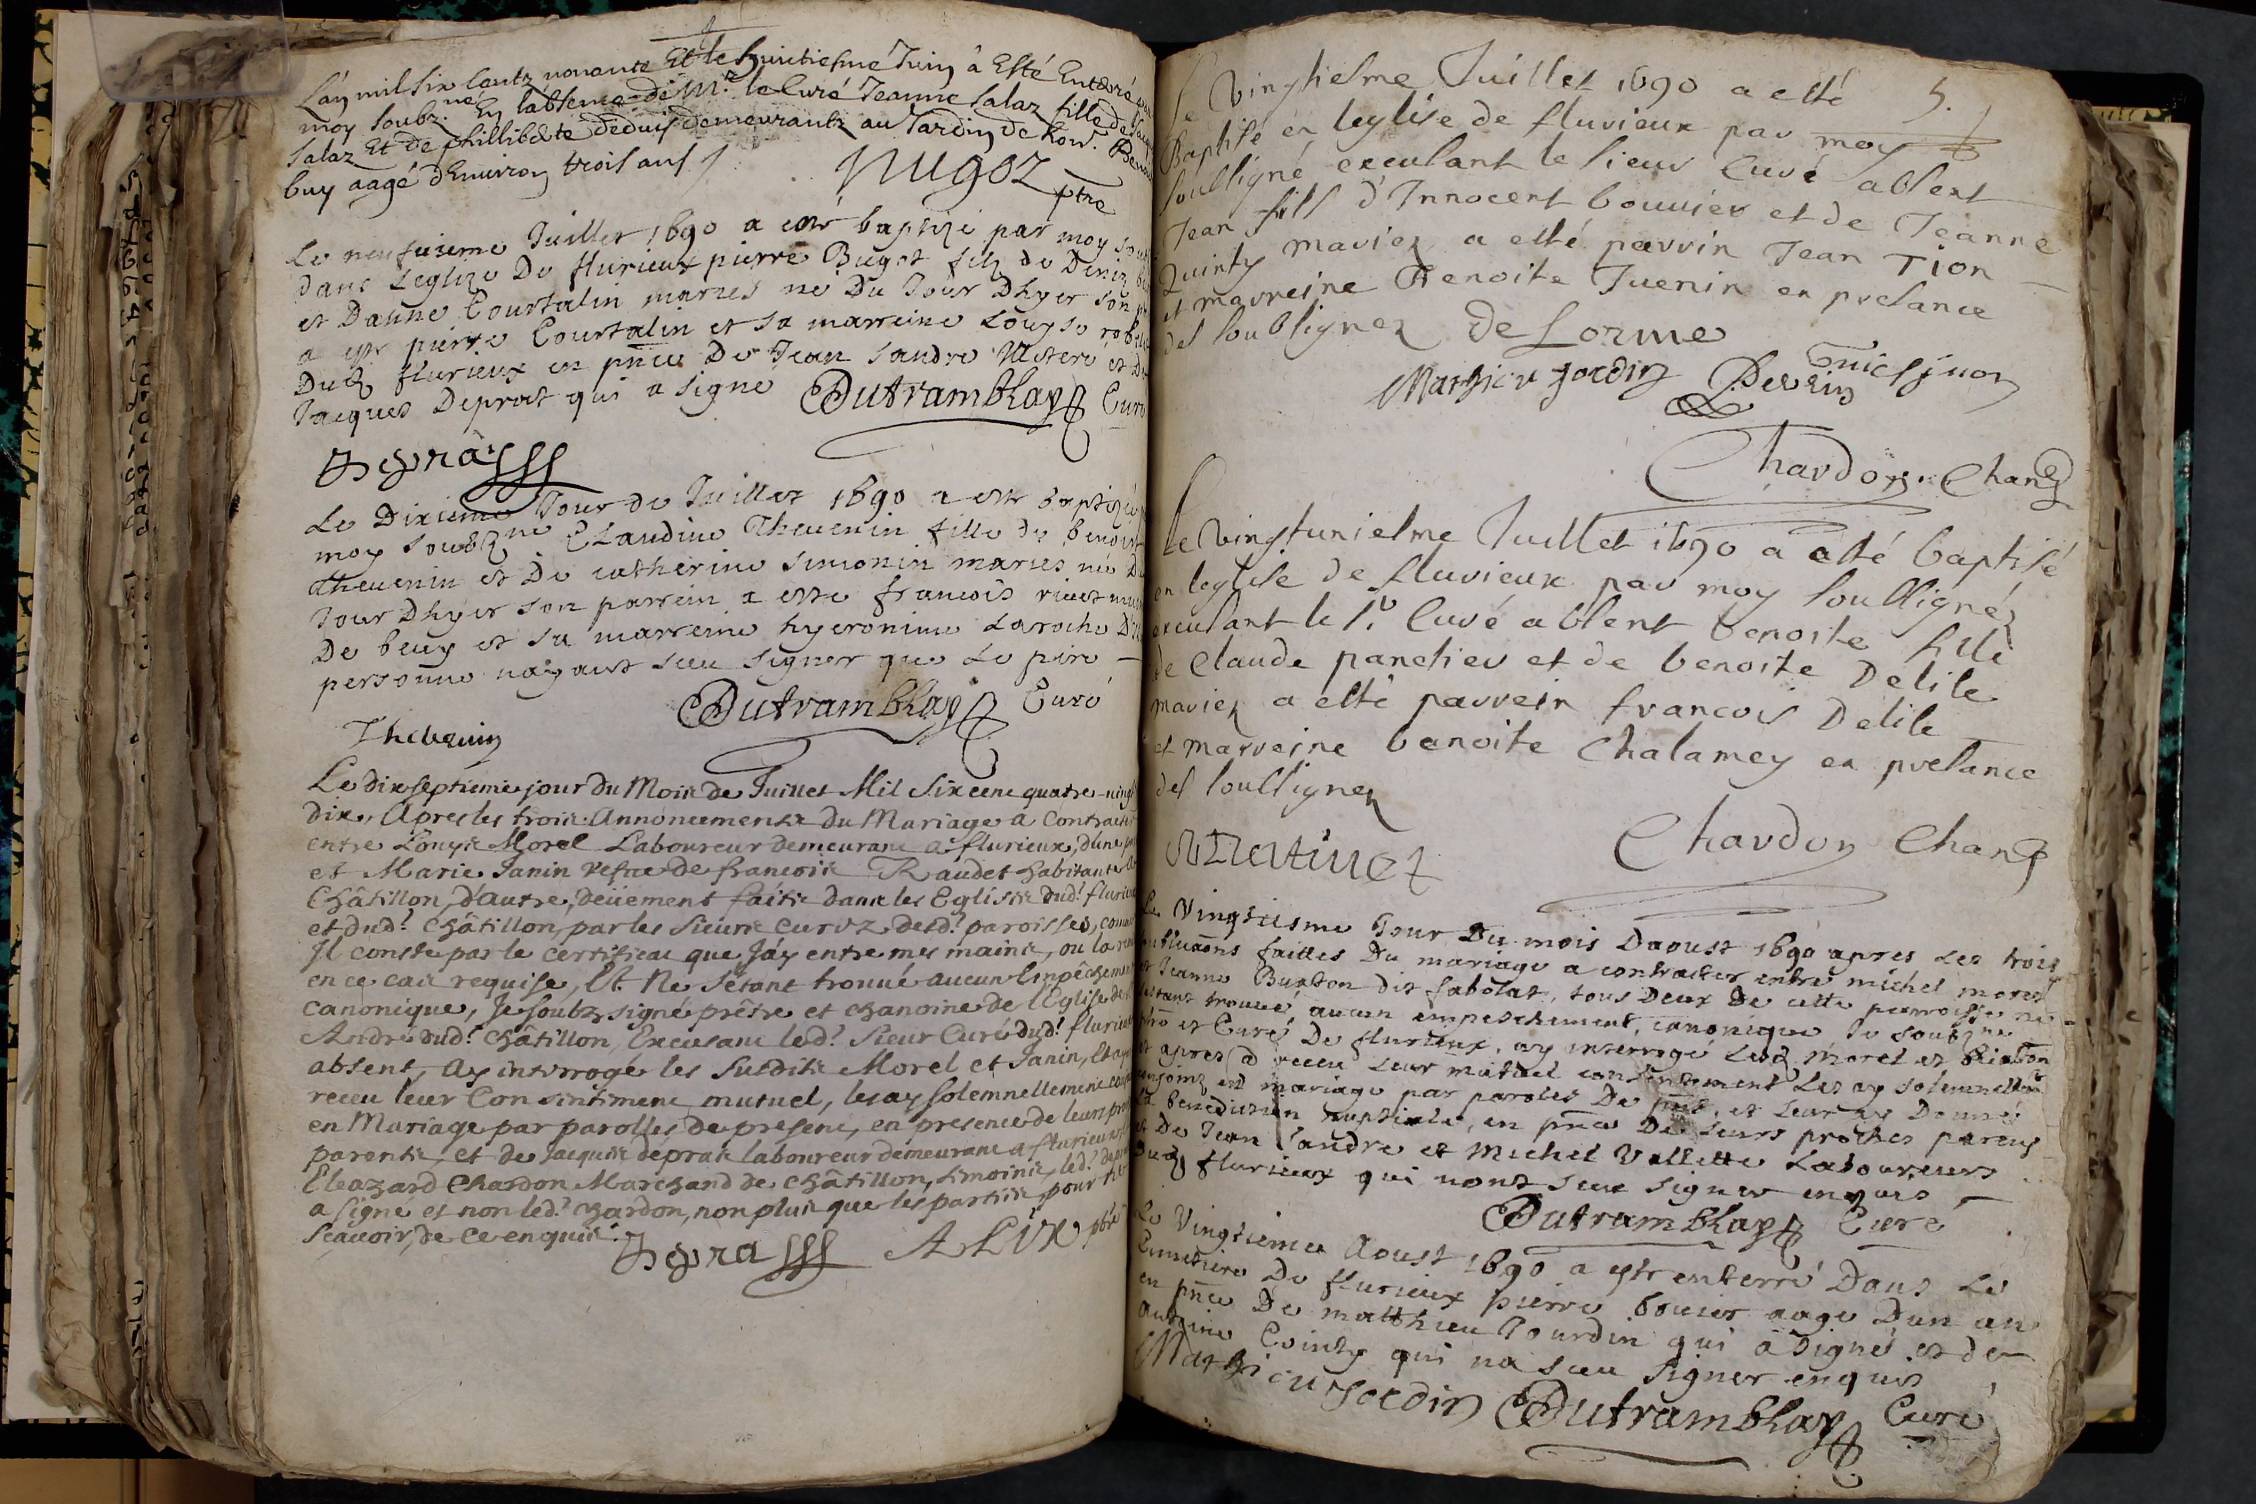 L'an mil six centz nonante Et le huictiesme Juin â Esté Enterré par
moy soubz.né En labsence de Mr. le Curé Jeanne Salaz fille de
Salaz Et de phillibèrte deduis demeurantz au Jardin de
buy aagé dEnuiron trois ans
Nugoz ptre
Le neufuieme Juillet 1690 a esté baptizé par moy
dans Leglize De flurieux pierre Bugot filz de Deniz
et Danne Courtalin mariés né Du Jour Dhyer son
a este pierre Courtalin et sa marreine Louyse
Dud flurieux en pnce De Jean Sandre et
Jacques Deprat qui a signé Dutramblay Curé
Depras
Le Dixieme Jour de Juillet 1690 a esté baptizée
moy soubzne Claudine Theuenin fille de benoist
Theuenin et De catherine Simonin mariés née Du
Jour Dhyer son parrein a esté francois
De beuy et sa marreine hyeronime Laroche
personne nayant sceu signer que Le pere
Dutramblay Curé
Theuenin
Le dix septieme jour du Mois de Juillet Mil six cent quatre-uingt
dix, Apres les trois Annoncements du Mariage a Contracter
entre Louys Morel Laboureur demeurant a flurieux, d'une part
et Marie Janin vefue de francois Raudet habitante
Châtillon, d'autre, deüement faits dans les Eglises dud.t flurieux
et dud.t Châtillon, par les sieurs curez desd.t paroisses, comme
Il conste par le certificat que J'ay entre mes mains, ou la
en ce cas requise, Et Ne s'étant trouué aucun Empêchement
canonique, Je soubzsigné prêtre et chanoine de l'Eglise de
André dud.t Châtillon, Excusant led.t Sieur Curé dud.t flurieux
absent, Ay interrogé les Susdits Morel et Janin, Et ayant
receu leur Consentiment mutuel, les ay solemnellement
en Mariage par parolles de present, en presence de leurs proches
parents, et de Jacques déprat laboureur demeurant a flurieux
Eleazard Chardon Marchand de Châtillon, témoins, led.t
a signé et non led.t chardon, non plus que les parties, pour
sçauoir, de ce enquis.
Depras ALIX pbre
5.
Le Vingtiesme Juillet 1690 a esté
Baptisé en leglise de fluvieux par moy
soussigné excusant le sieur Curé absent
Jean fils d'Innocent bouuier et de Jeanne
Quinty mariez a esté parrin Jean Tion
et marreine Benoite Juenin en presance
des soubsignez DeLorme
Mathieu Jordin Perrin
Chardon Chan.
Le Vingtuniesme Juillet 1690 a esté baptisé
en leglise de fluvieux par moy soussigné
excusant le Sr Curé absent benoite fille
de Claude panetier et de benoite Delile
mariez a esté parrein francois Delile
et marreine benoite Chalamey en presance
des soussignez
Chardon Chan.
Le Vingtiesme Jour Du mois Daoust 1690 apres Les trois
faittes Du mariage a contracter entre michel morel
et Jeanne Burton dit sabolat, tous Deux De cette parroisse ne
sestant trouué, aucun empeschement, canonique Je soubzne
ptre et Curé De flurieux, ay interrogé Lesd morel et Burton
et apres a receu Leur mutuel consentement Les ay solemnellemt
conjoinz en mariage par paroles De pnt, et Leur ay Donné
La benediction nuptiale, en pnce De Leurs proches parens
et De Jean Sandre et Michel Vallette Laboureurs
Dud flurieux qui nont sceu signer enquis
Dutramblay Curé
Le Vingtieme Aoust 1690 a este enterré Dans Le
Cimetiere De flurieux pierre bouier aagé Dun an
en pnce De matthieu Jourdin qui â signé et de
antoine Cointy qui na sceu signer enquis
Mathieu Jordin Dutramblay Curé